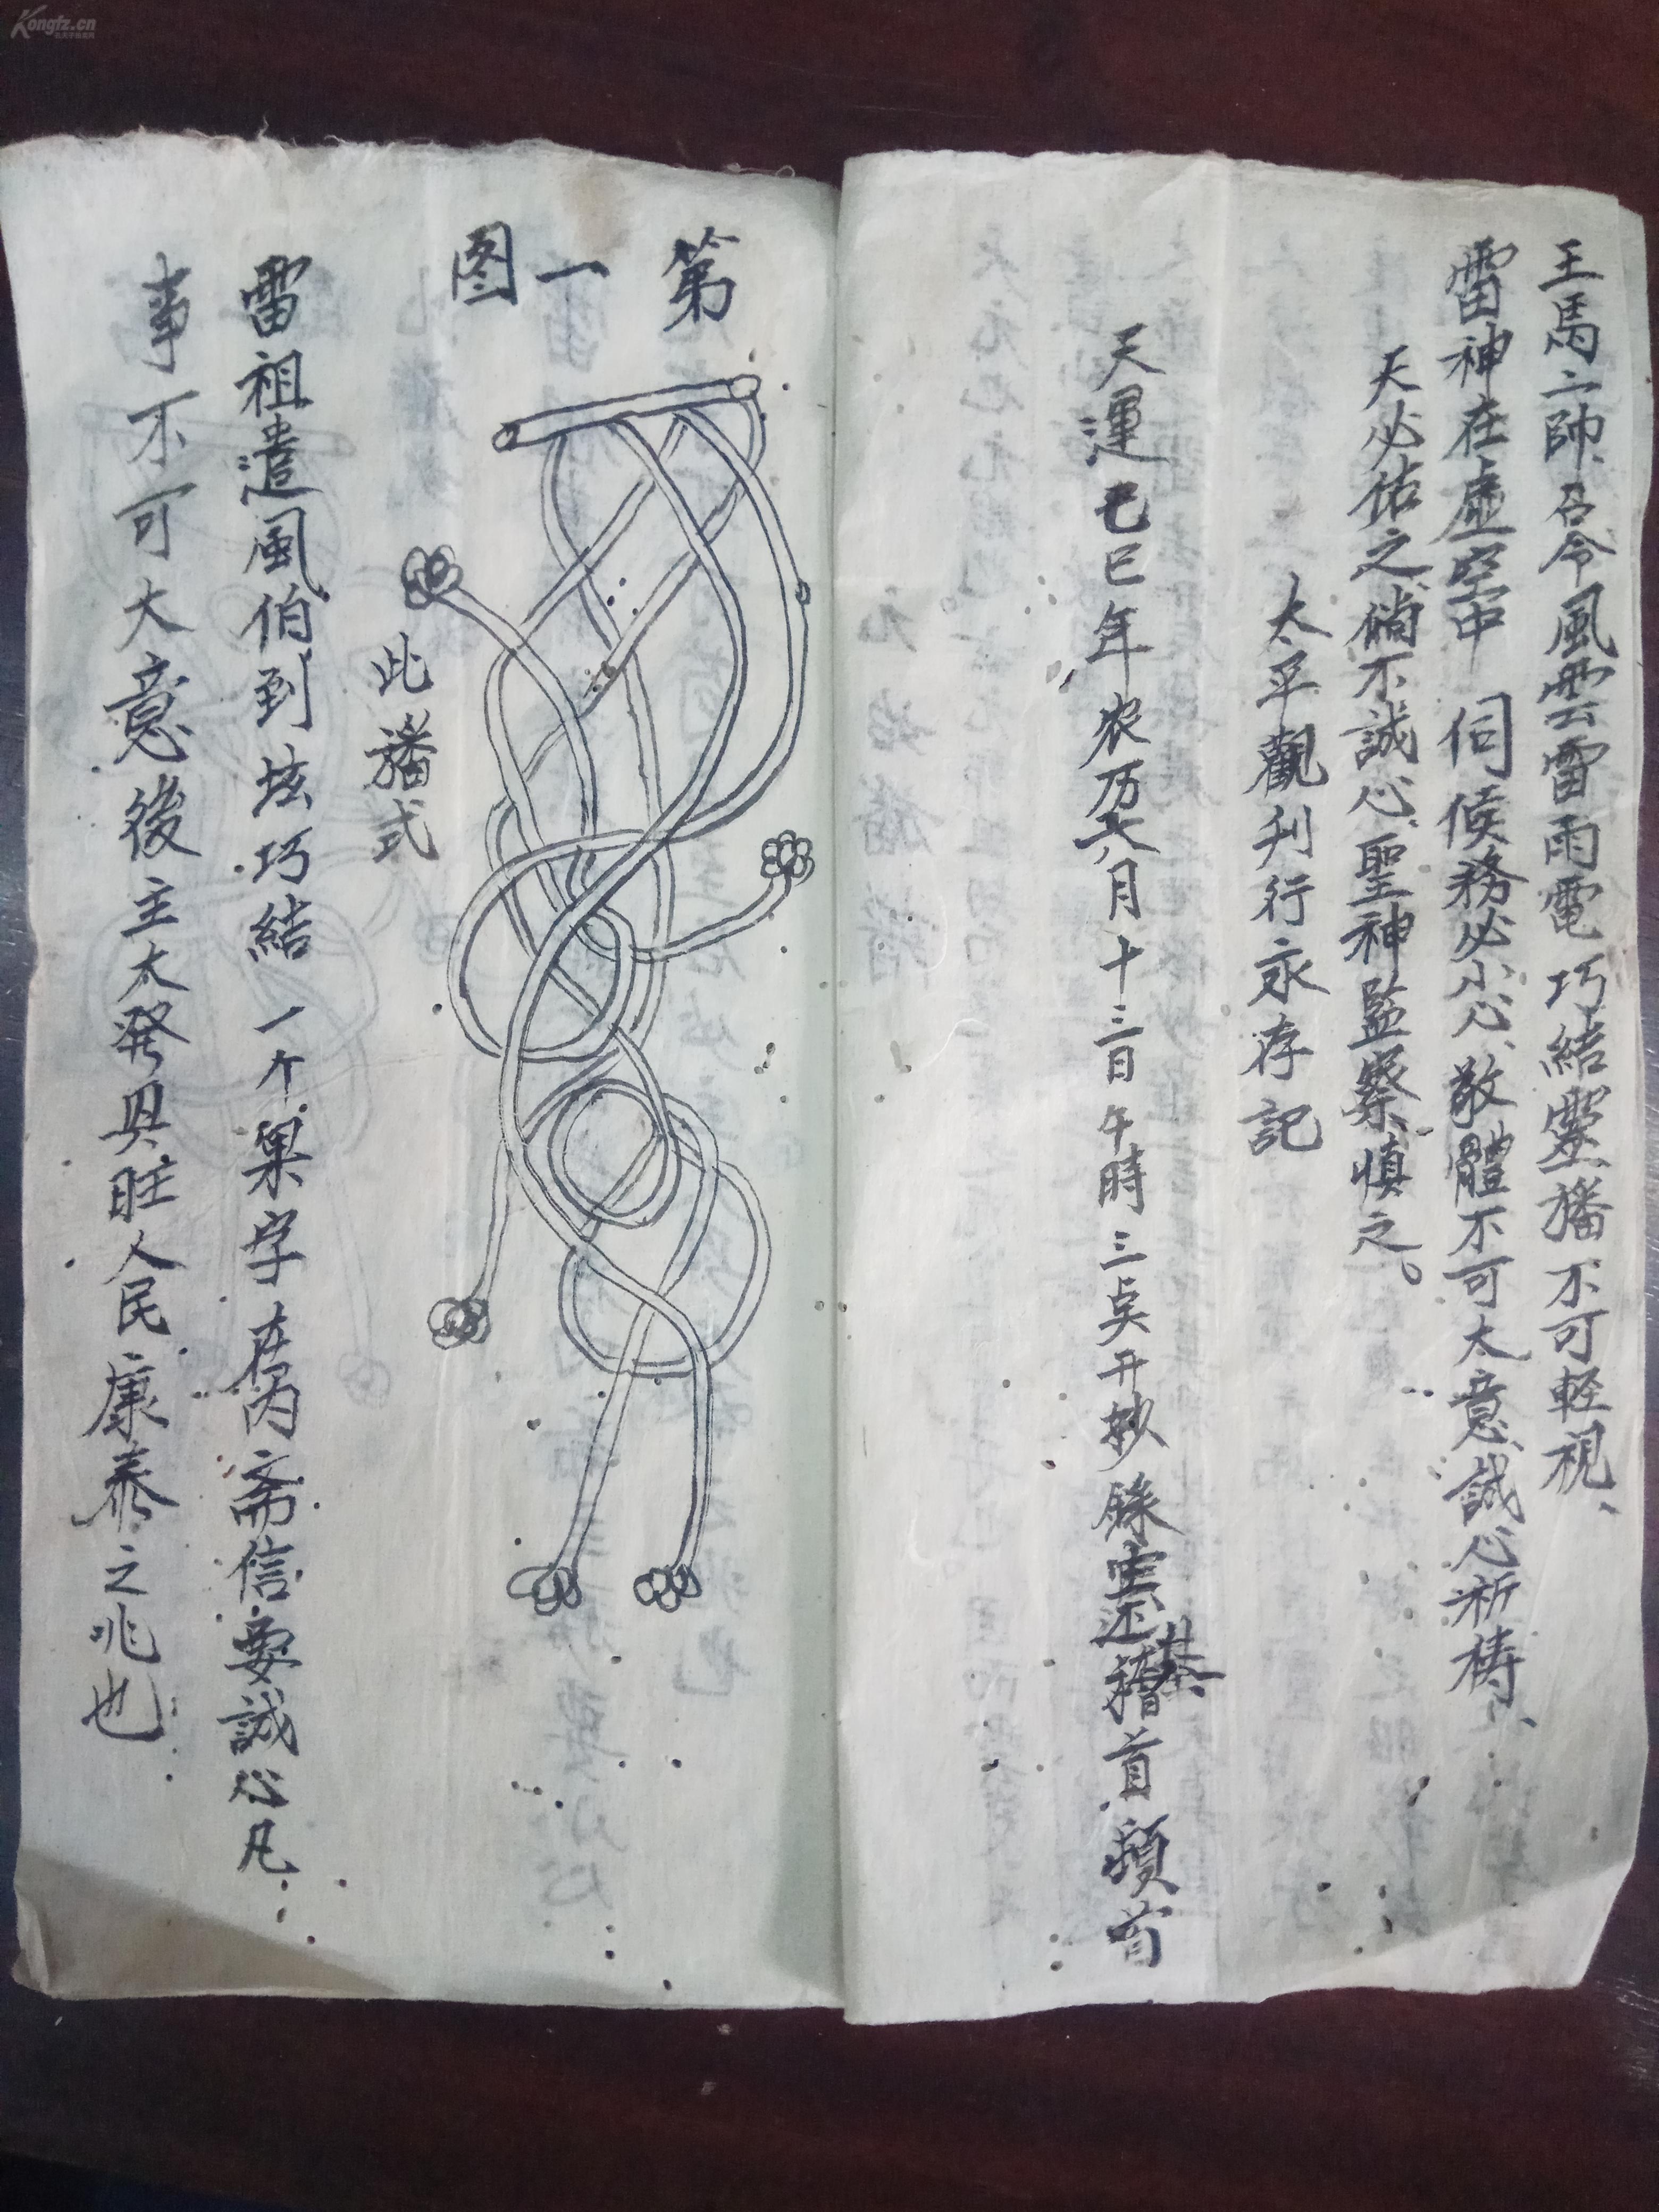 王馬二帥、召令風雲雷雨電巧結靈旛不可輕視、
雷神在虛空中 伺候務必小心、敬體不可大意、誠心祈禱、
天必佑之、倘不誠心、聖神監察、慎之。
太平觀刋行永存記
天運己巳年农历七月十三日午時三点开抄錄 稽首頓首
第一图
此旛式
雷祖遣風伯到坛巧結一个果字在内斋信要誠心凡
事不可大意後主大発興旺人民康泰之兆也
Kongfz.cn